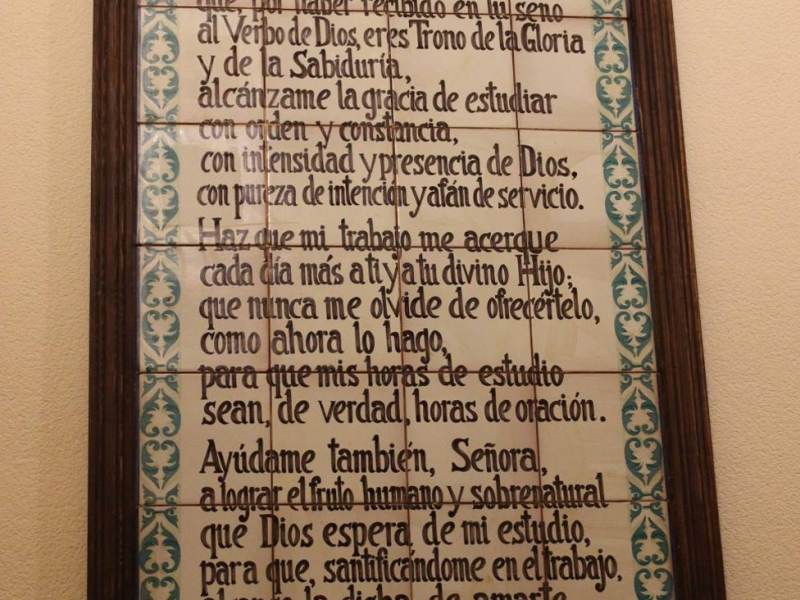 que, por haber recibido en tu seno
al Verbo de Dios, eres Trono de la Gloria
y de la Sabiduría,
alcánzame la gracia de estudiar
con orden y constancia,
con intensidad y presencia de Dios,
con pureza de intención y afán de servicio.
Haz que mi trabajo me acerque
cada día más a ti y a tu divino Hijo;
que nunca me olvide de ofrecértelo,
como ahora lo hago,
para que mis horas de estudio
sean, de verdad, horas de oración.
Ayúdame también, Señora,
a lograr el fruto humano y sobrenatural
que Dios espera de mi estudio,
para que, santificándome en el trabajo,
la dicha de amarte